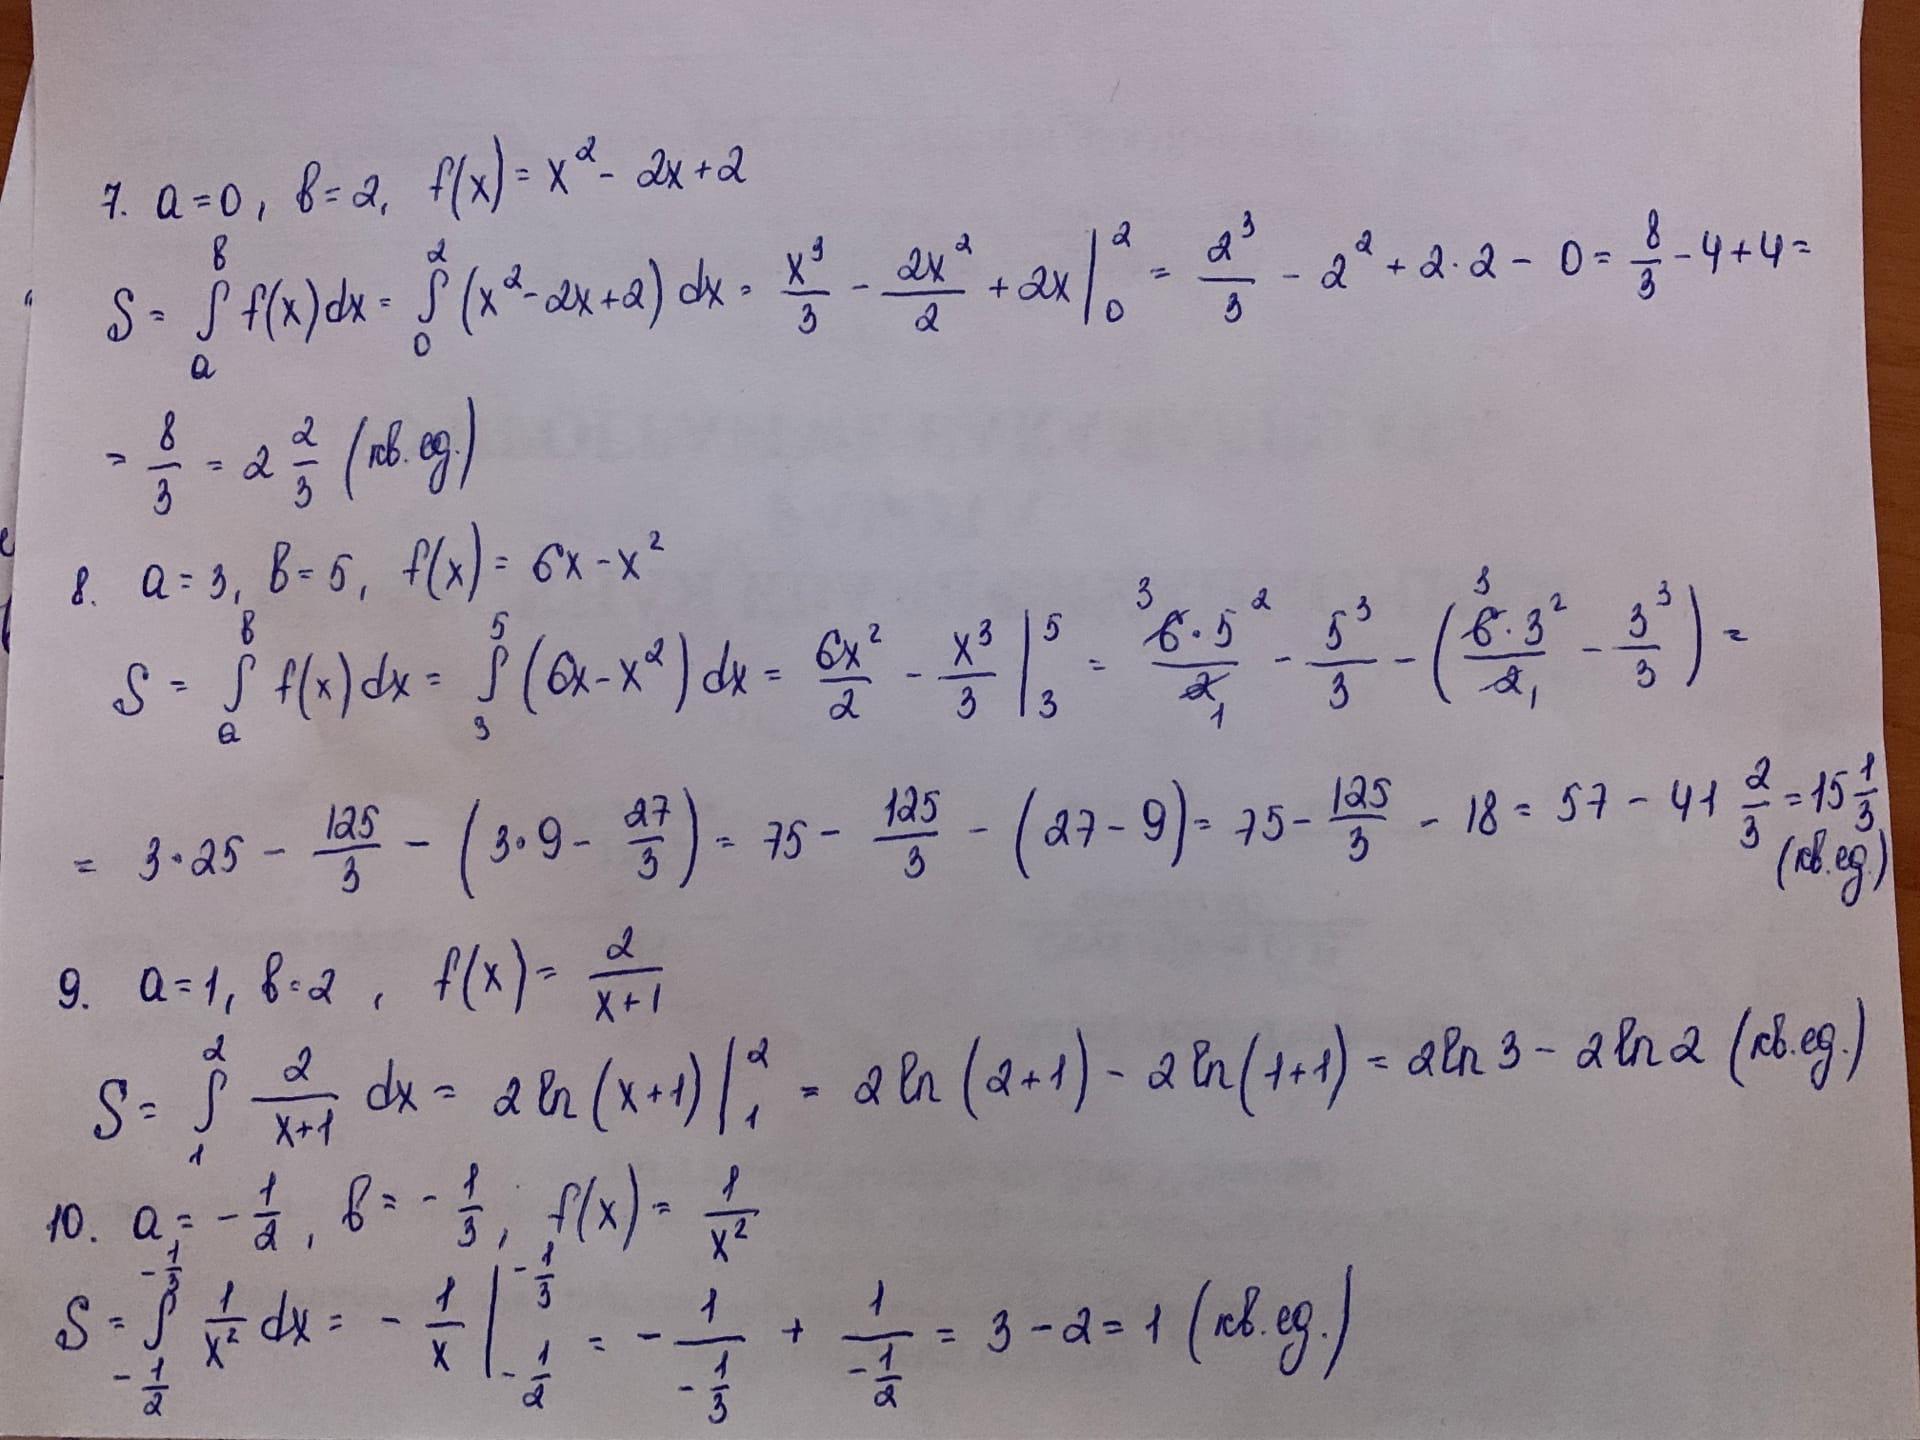 7. a=0, b=2, f(x)=x²-2x+2
S=∫ₐᵇ f(x)dx=∫₀² (x²-2x+2)dx=x³/3 - 2x²/2 + 2x|₀² = 2³/3 - 2² + 2·2 - 0 = 8/3 - 4+4=
= 8/3 = 2 2/3 (кв.ед.)
8. a=3, b=5, f(x)=6x-x²
S=∫ₐᵇ f(x)dx=∫₃⁵ (6x-x²)dx = 6x²/2 - x³/3|₃⁵ = 6·5²/2 - 5³/3 - (6·3²/2 - 3³/3) =
= 3·25 - 125/3 - (3·9 - 27/3) = 75 - 125/3 - (27-9) = 75 - 125/3 - 18 = 57 - 41 2/3 = 15 1/3 (кв.ед.)
9. a=1, b=2, f(x)= 2/(x+1)
S=∫₁² 2/(x+1) dx = 2ln(x+1)|₁² = 2ln(2+1) - 2ln(1+1) = 2ln3 - 2ln2 (кв.ед.)
10. a= -1/2, b= -1/3, f(x)= 1/x²
S= ∫_{-1/2}^{-1/3} 1/x² dx = -1/x |_{-1/2}^{-1/3} = - 1/(-1/3) + 1/(-1/2) = 3-2=1 (кв.ед.)